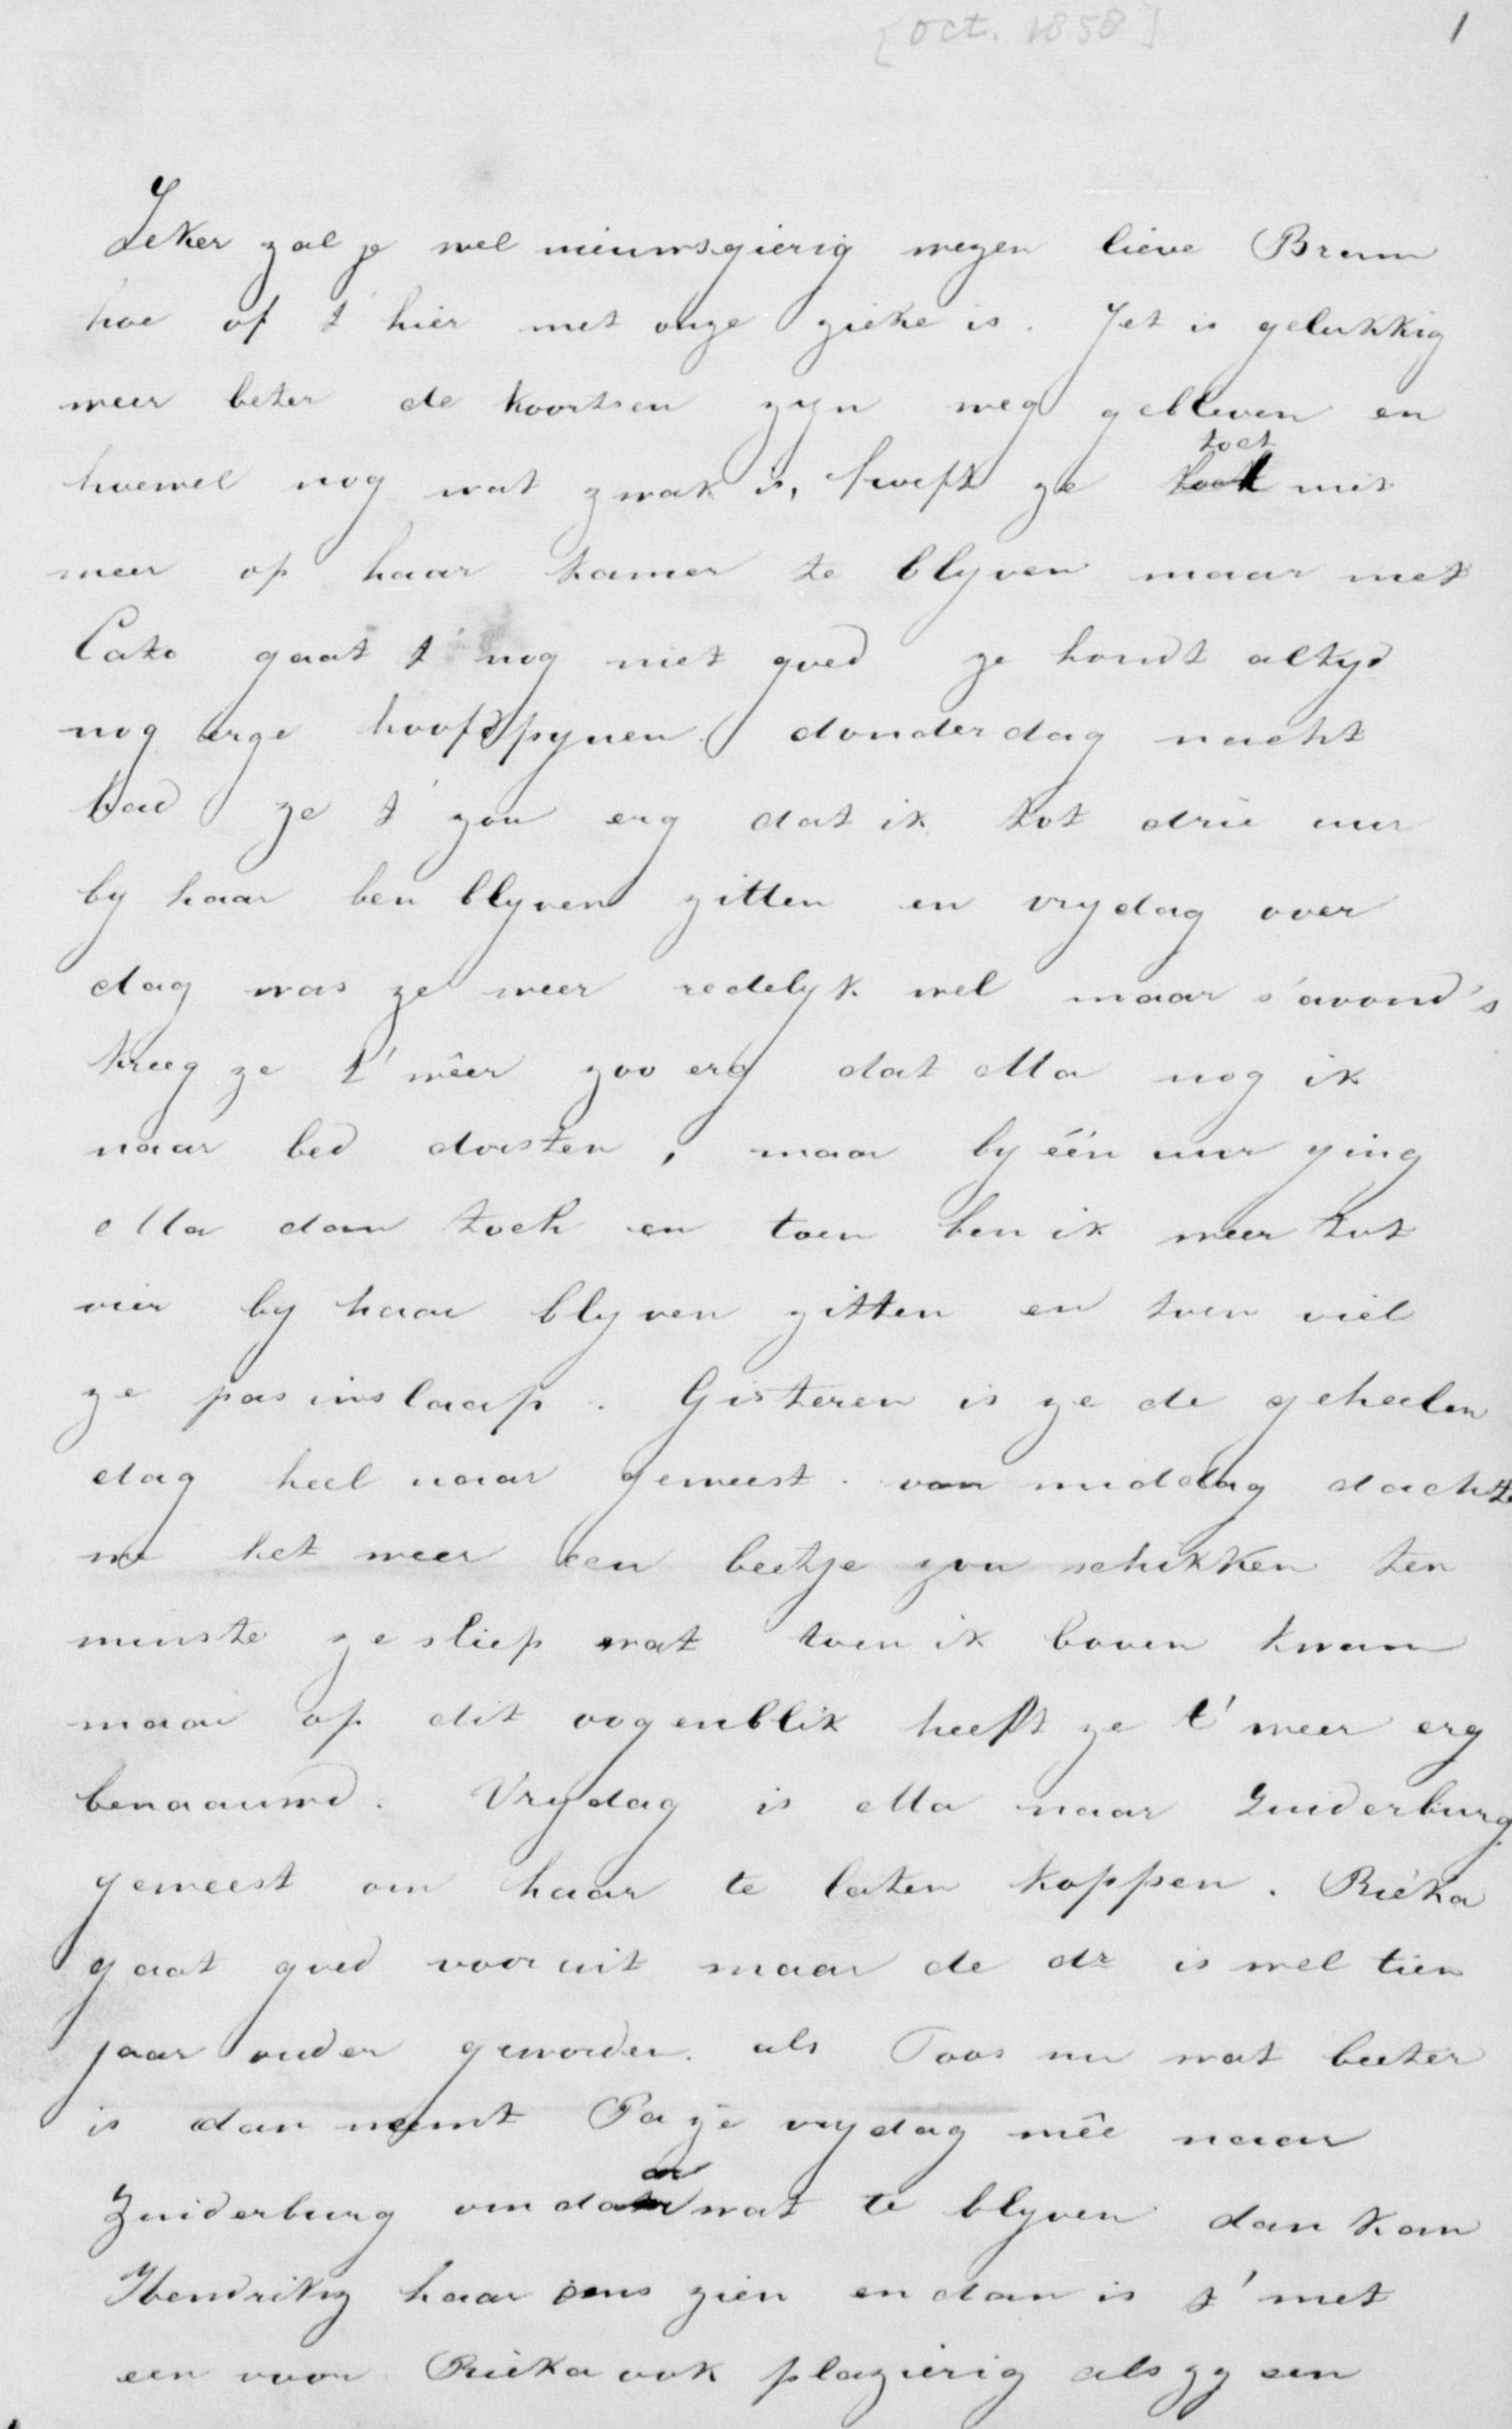 [Oct. 1858]
1
Zeker zal je wel nieuwsgierig wezen lieve Bram
hoe of t' hier met onze zieke is. Jet is gelukkig
weer beter de koortsen zyn weg gebleven en
hoewel nog wat zwak is, hoeft ze toch niet
meer op haar kamer te blyven maar met
Cato gaat t' nog niet goed ze houdt altyd
nog erge hoofdpynen donderdag nacht
had ze t' zou erg dat ik tot drie uur
by haar ben blyven zitten en vrydag over
dag was ze weer redelyk wel maar s'avond's
kreeg ze t' wêer zoo erg dat Ma nog ik
naar bed dorsten, maar by één uur ging
Ma dan toch en toen ben ik weer tot
vier by haar blyven zitten en toen viel
ze pas inslaap. Gisteren is ze de geheelen
dag heel naar geweest. van middag dachte
we het weer een beetje zou schikken ten
minste ze sliep wat toen ik boven kwam
maar op dit oogenblik heeft ze t' weer erg
benaauwd. Vrydag is Ma naar Zuiderburg
geweest om haar te laten koppen. Rieka
gaat goed vooruit maar de dr is wel tien
jaar ouder geworden. als Toos nu wat beeter
is dan neemt Pa ze vrydag mêe naar
Zuiderburg om daar wat te blyven dan kan
Hendriksz haar eens zien en dan is t' met
een voor Rieka ook plazierig als zy een